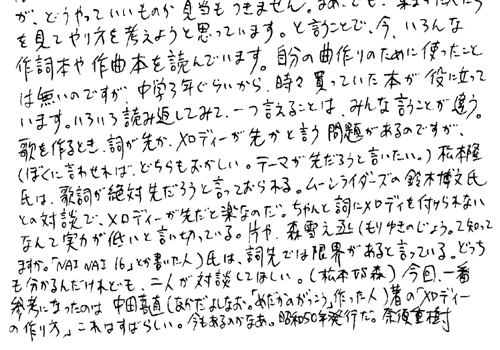 が、どうやっていいものか見当もつきません。まあ、でも、集まった人たち
を見てやり方を考えようと思っています。と言うことで、今、いろんな
作詞本や作曲本を読んでいます。自分の曲作りのために使ったこと
は無いのですが、中学3年ぐらいから、時々買っていた本が役に立って
います。いろいろ読み返してみて、一つ言えることは、みんな言うことが違う。
歌を作るとき、詞が先か、メロディーが先かと言う問題があるのですが、
(ぼくに言わせれば、どちらもおかしい。テーマが先だろうと言いたい。)松本隆
氏は、歌詞が絶対先だろうと言っておられる。ムーンライダーズの鈴木博文氏
との対談で、メロディーが先だと楽なのだ。ちゃんと詞にメロディを付けられない
なんて実力が低いと言い切っている。片や、森雪之丞(もりゆきのじょう。て知って
ますか。「NAI NAI 16」とか書いた人)氏は、詞先では限界があると言っている。どっち
も分かるんだけれども、二人が対談してほしい。(松本VS森)今回、一番
参考になったのは中田喜直(なかだよしなお。「めだかのがっこう」作った人)著の「メロディー
の作り方」これはすばらしい。今もあるのかなあ。昭和50年発行だ。奈須重樹